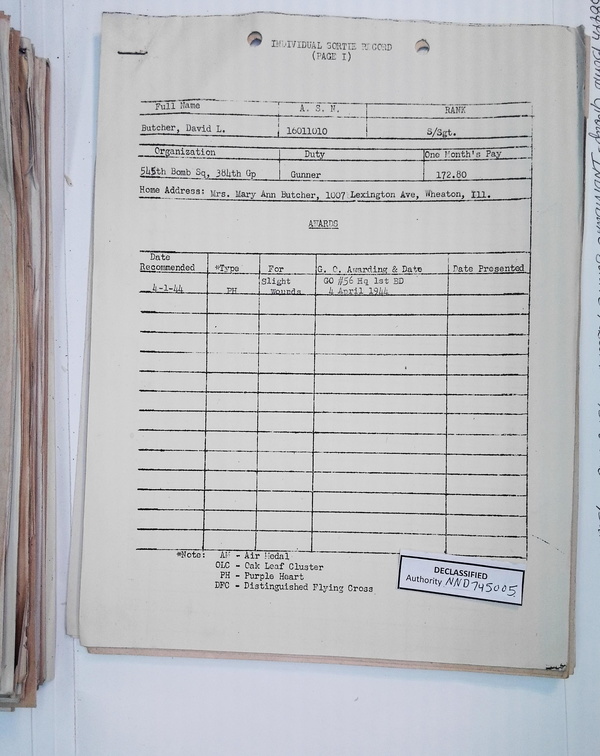 INDIVIDUAL SORTIE RECORD
(PAGE I)
Full Name A. S. N. RANK
Butcher, David L. 16011010 S/Sgt.
Organization Duty One Month's Pay
545th Bomb Sq, 384th Gp Gunner 172.80
Home Address: Mrs. Mary Ann Butcher, 1007 Lexington Ave, Wheaton, Ill.
AWARDS
Date
Recommended *Type For G. O. Awarding & Date Date Presented
4-1-44 PH Slight Wounds GO #56 Hq 1st BD
4 April 1944
*Note: AM - Air Medal
OLC - Oak Leaf Cluster
PH - Purple Heart
DFC - Distinguished Flying Cross
DECLASSIFIED
Authority NND745005